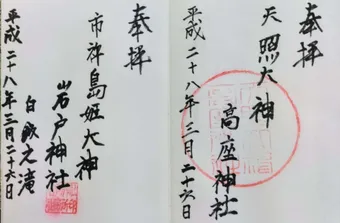 奉拝
天照大神
高座神社
平成二十八年三月二十六日
奉拝
市杵島姫大神
岩戸神社
白浜之濱
平成二十八年三月二十六日